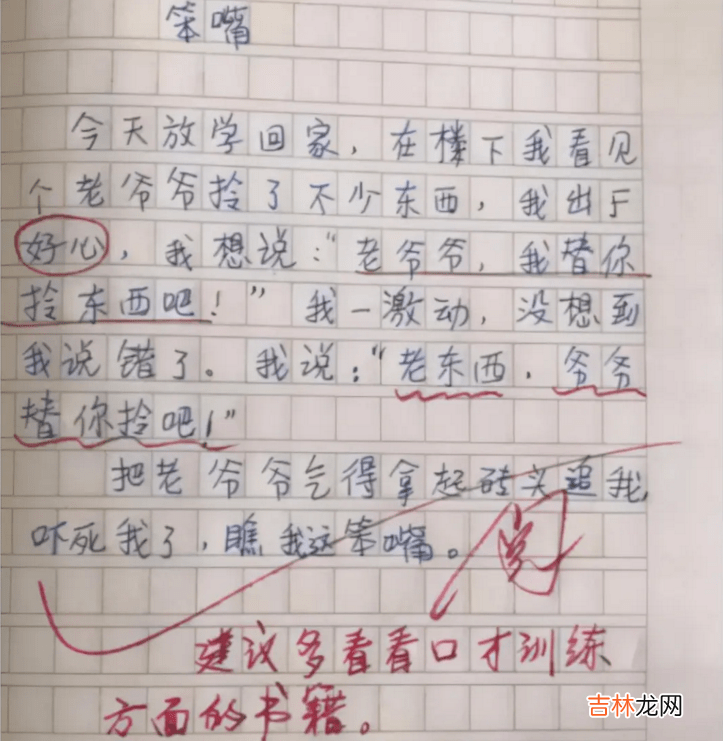 笨嘴
今天放学回家，在楼下我看见
个老爷爷拎了不少东西，我出于
好心，我想说："老爷爷，我替你
拎东西吧！"我一激动，没想到
我说错了。我说："老东西，爷爷
替你拎吧！"
把老爷爷气得拿起砖头追我，
吓死我了，瞧我这笨嘴。
阅
建议多看看口才训练
方面的书籍。
吉林龙网